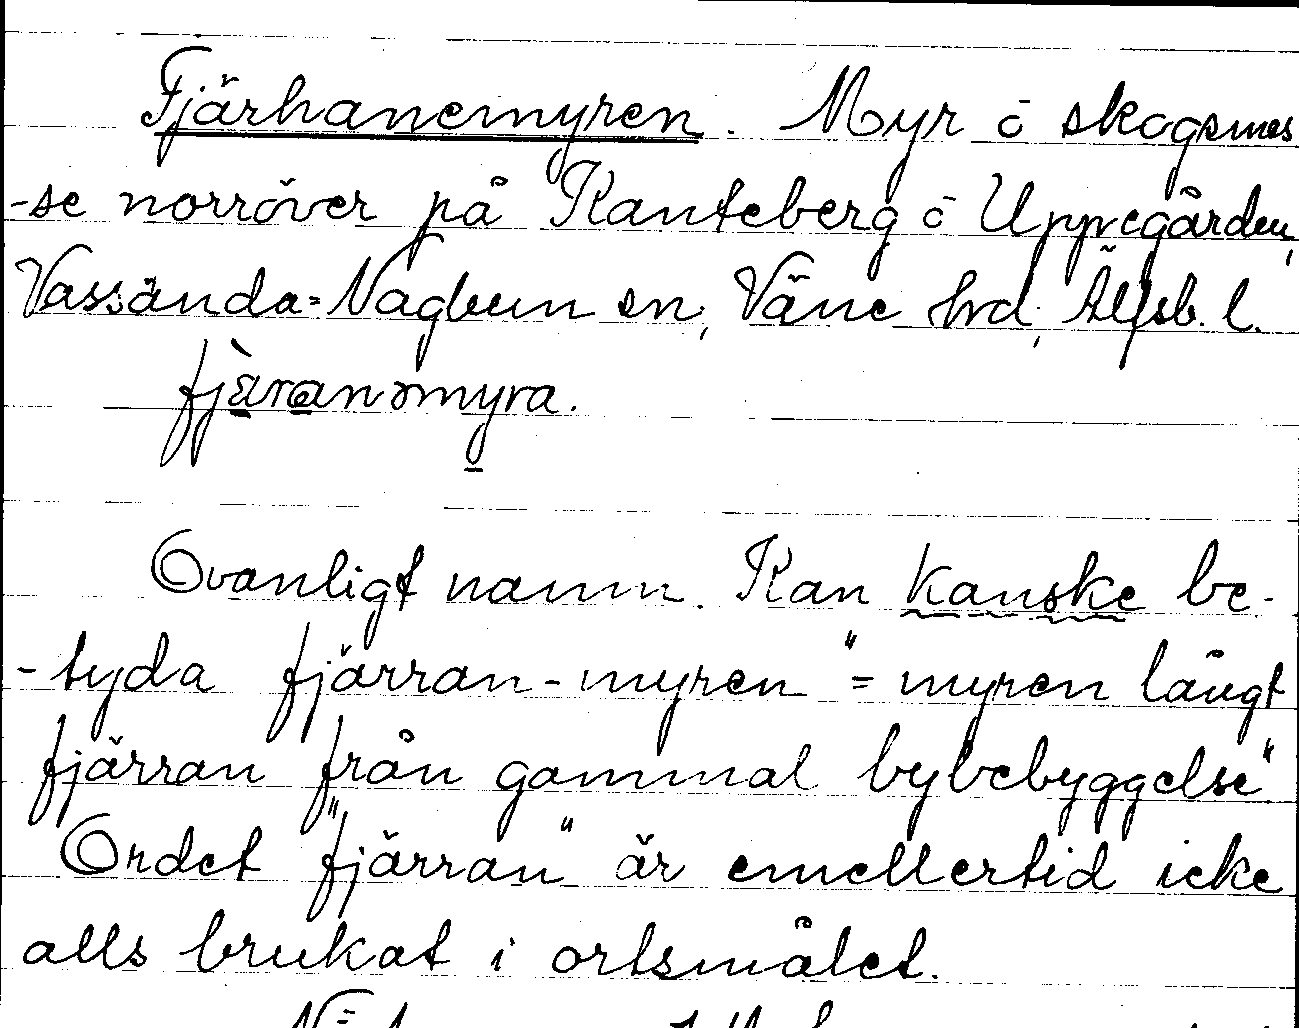 Fjärhanemyren. Myr ō skogsmos
-se norröver på Ranteberg ō Uppegården,
Vassända-Nagleum sn, Väne hrd, Älfsb. l.
fjàranəmyra.
Ovanligt namn. Kan kanske be-
-tyda fjärran-myren" = myren långt
fjärran från gammal bybebyggelse".
Ordet "fjärran" är emellertid icke
alls brukat i ortsmålet.